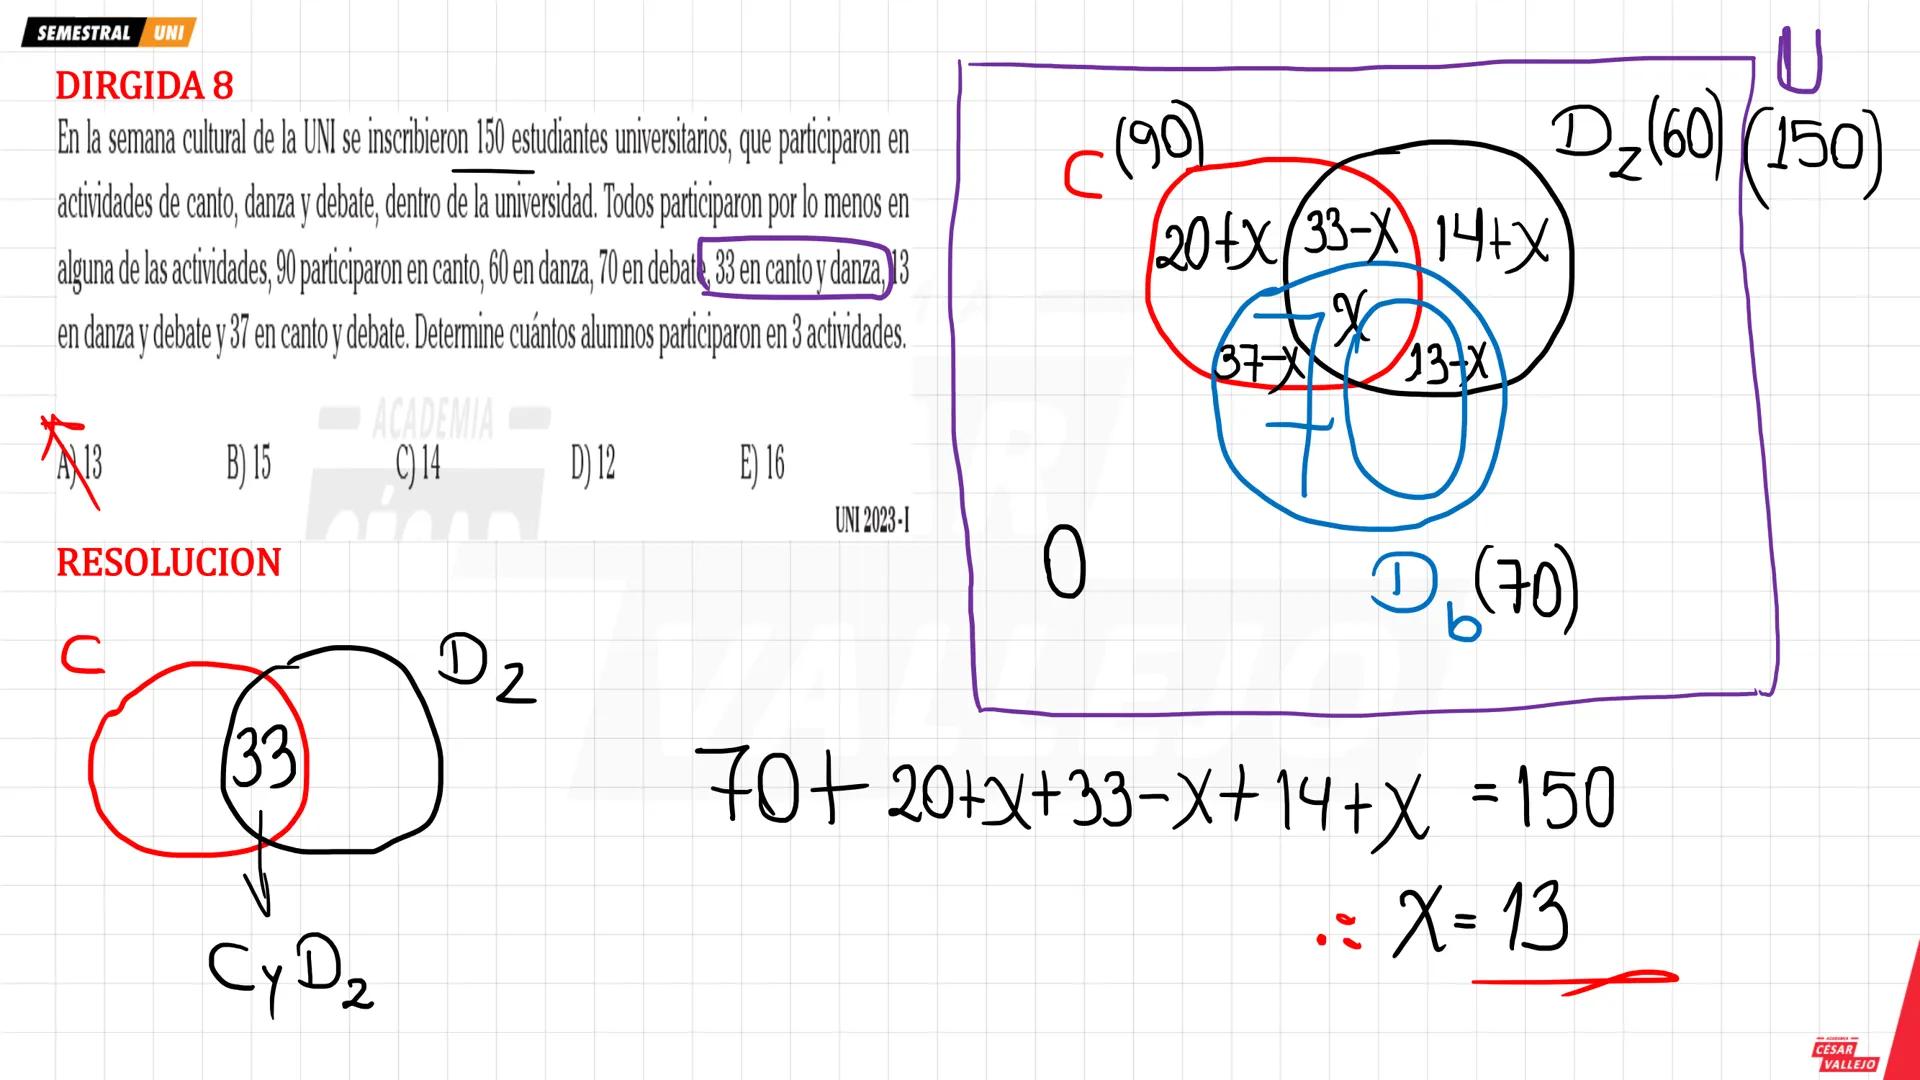 SEMESTRAL UNI
DIRGIDA 8
En la semana cultural de la UNI se inscribieron 150 estudiantes universitarios, que participaron en
actividades de canto, danza y debate, dentro de la universidad. Todos participaron por lo menos en
alguna de las actividades, 90 participaron en canto, 60 en danza, 70 en debate, 33 en canto y danza, 13
en danza y debate y 37 en canto y debate. Determine cuántos alumnos participaron en 3 actividades.
A) 13 B) 15 C) 14 D) 12 E) 16
UNI 2023-I
RESOLUCION
C Dz
33
C y Dz
U
C (90) Dz (60) (150)
20+x 33-x 14+x
x
37-x 13-x
70
0
Db (70)
70+ 20+x+33-x+14+x = 150
∴ x = 13
ACADEMIA
CÉSAR
VALLEJO
ACADEMIA
CÉSAR
VALLEJO